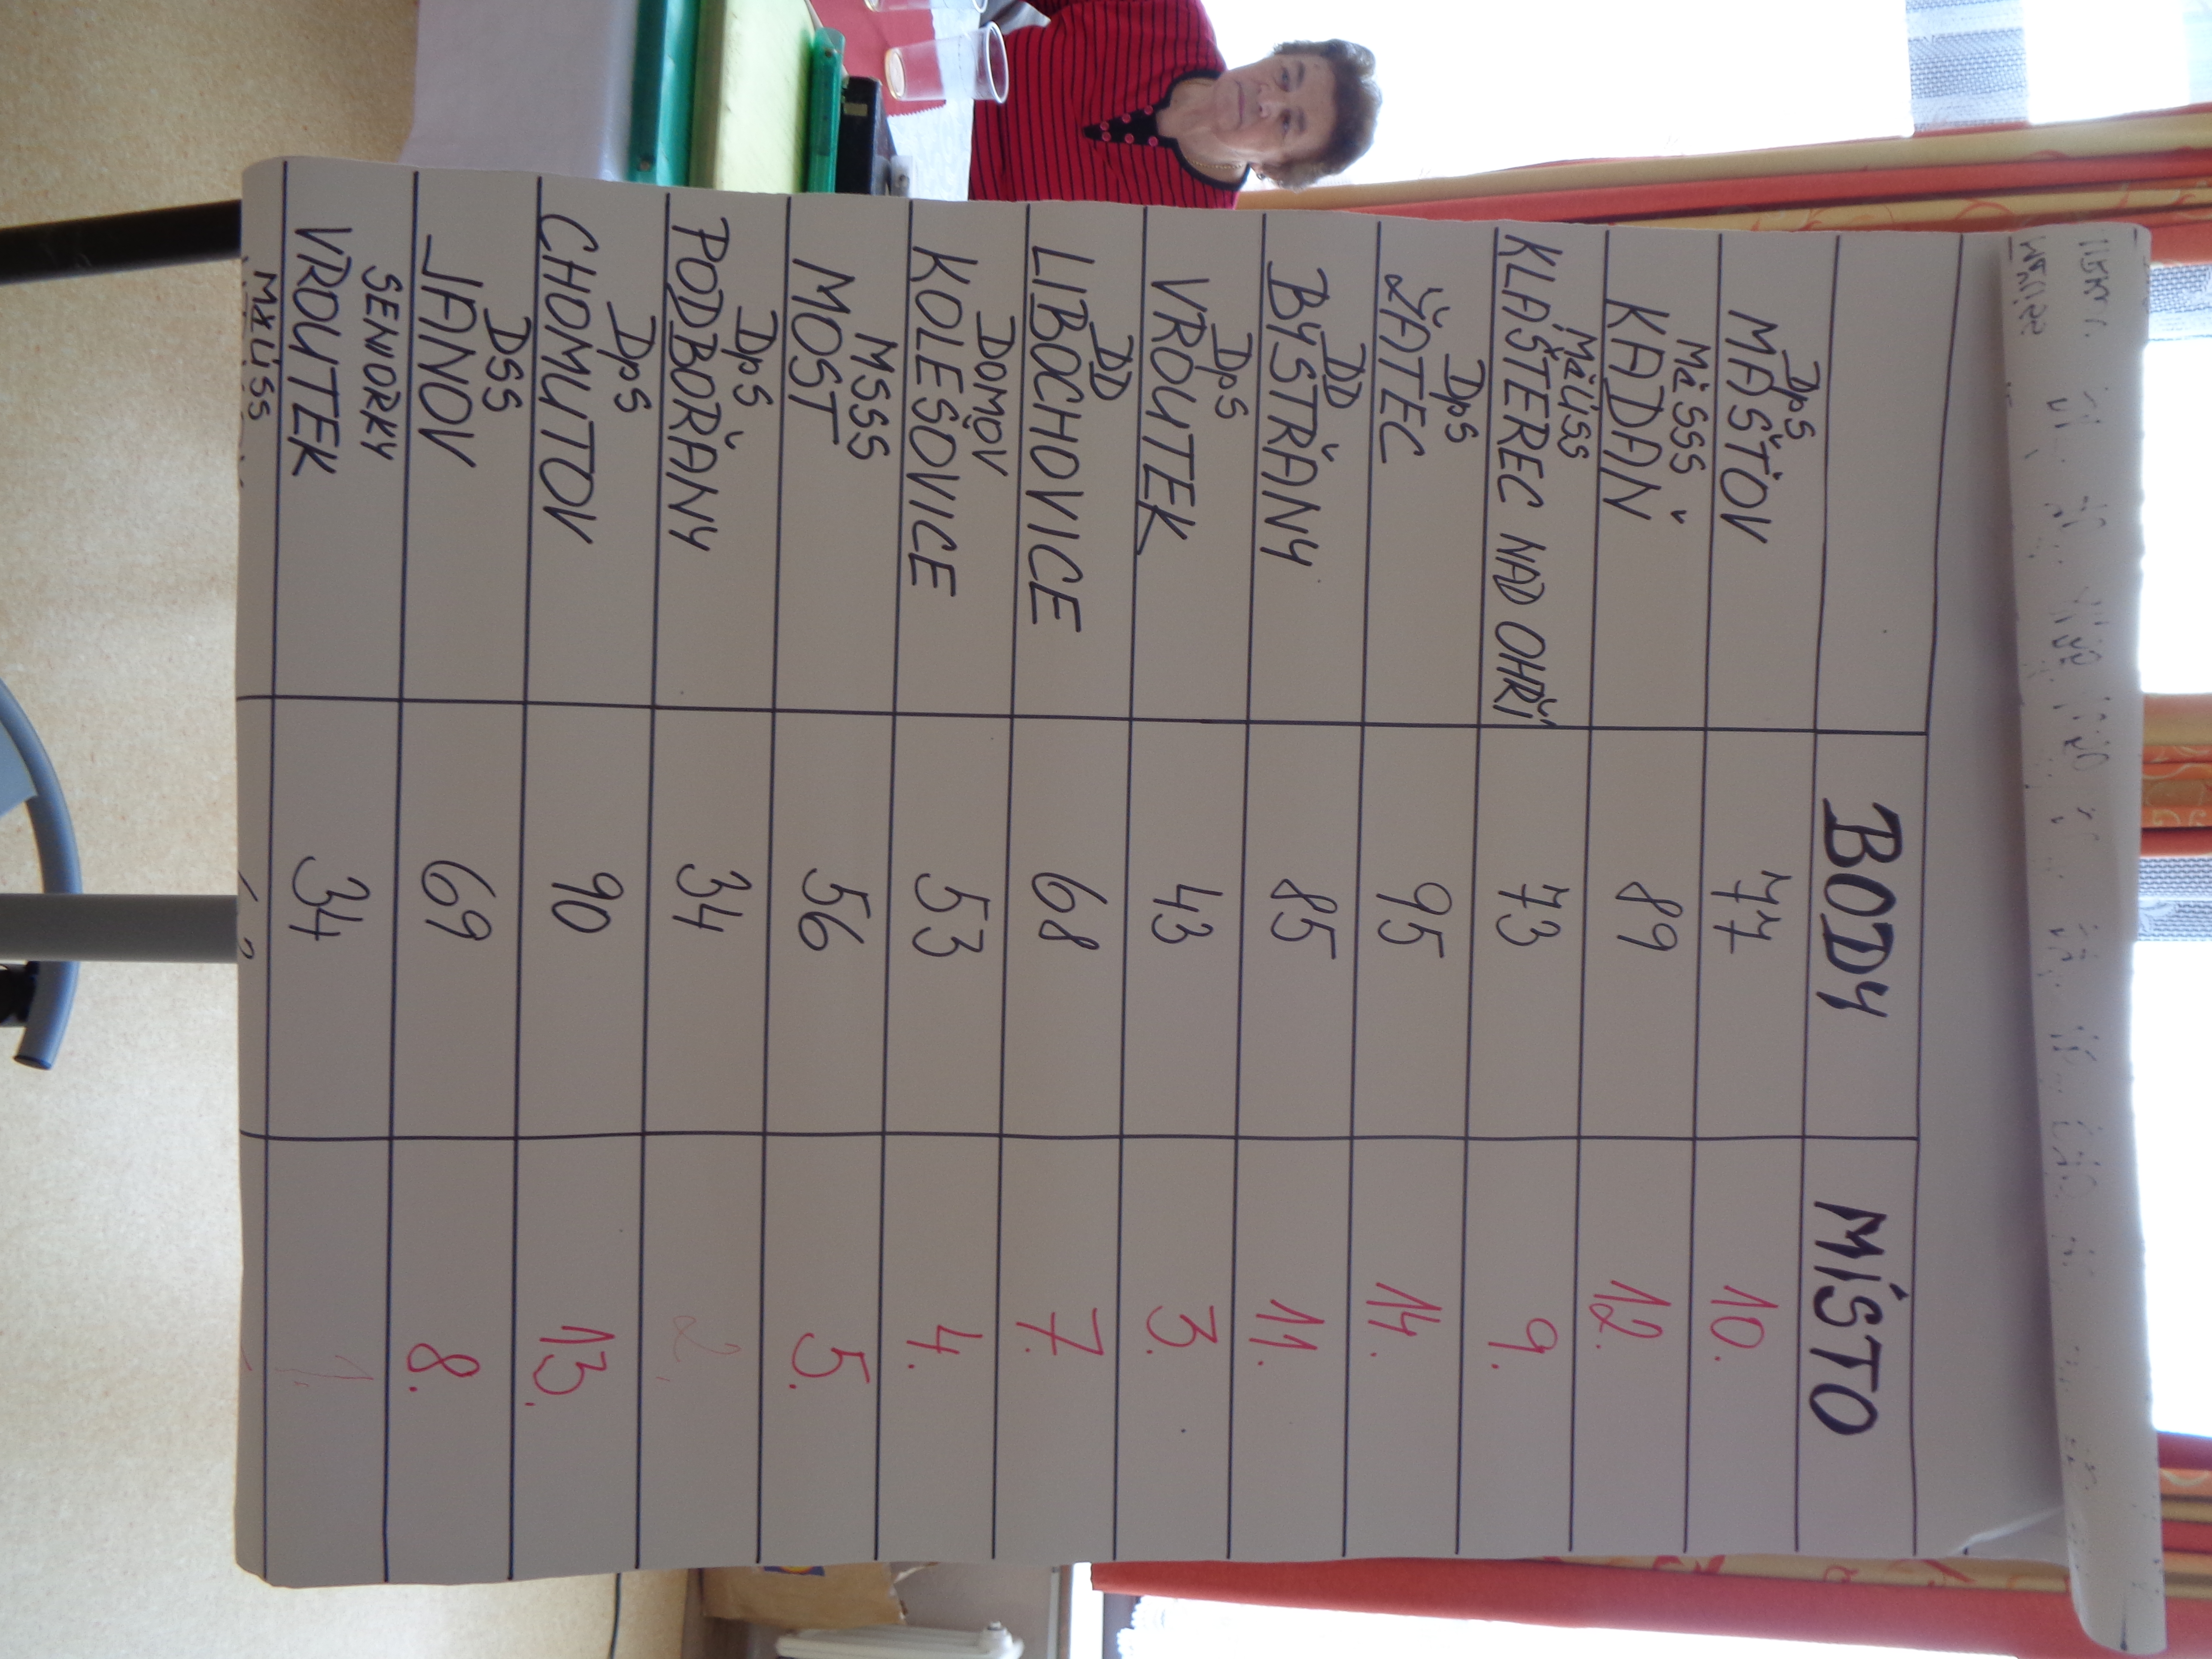 BODY MÍSTO
DpS
MAŠŤOV 77 10.
MěSSS
KADAŇ 89 12.
MěÚSS
KLAŠTEREC NAD OHŘÍ 73 9.
DpS
ŽATEC 95 14.
DD
BYSTŘANY 85 11.
DpS
VROUTEK 43 3.
DD
LIBOCHOVICE 68 7.
DOMOV
KOLEŠOVICE 53 4.
MSSS
MOST 56 5.
DpS
PODBOŘANY 34 2.
DpS
CHOMUTOV 90 13.
DSS
JANOV 69 8.
SENIORKY
VROUTEK 34 1.
MěÚSS